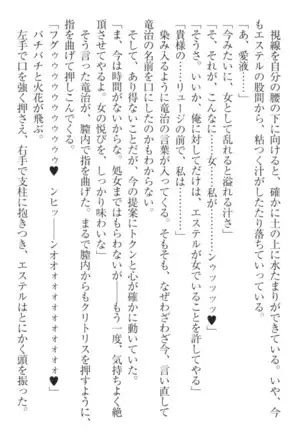 視線を自分の腰の下に向けると、確かに土の上に水たまりができている。いや、今
もエステルの股間から、粘つく汁がしたたり落ちていっている。
「あ、愛液……」
「今みたいに、女として乱れると溢れる汁さ」
「そ、それが、こんなに……女……ンゥッッッ♥」
「そうさ。いいか、俺に対してだけは、エステルが女でいることを許してやる」
「貴様の……リュージの前で、私は……」
染み入るように竜治の言葉が入ってくる。そもそも、なぜわざわざ今、言い直して
竜治の名前を口にしたのかもわからない。
そして、あり得ないことだが、今の提案にトクンと心が確かに動いていた。
「ま、今は時間がないからな。処女まではもらわないが――もう一度、気持ちよく絶
頂させてやるよ。女の悦びを、しっかり味わいな」
そう言った竜治が、膣内で指を曲げた。まるで膣内からもクリトリスを押すように、
指を曲げて押しこんでくる。
「フグゥゥゥゥゥゥゥゥゥ♥　ンヒッ――ンオオォォォォォォォォォ♥」
バチバチと火花が飛ぶ。
左手で口を強く押さえ、右手で支柱に抱きつき、エステルはとにかく頭を振った。